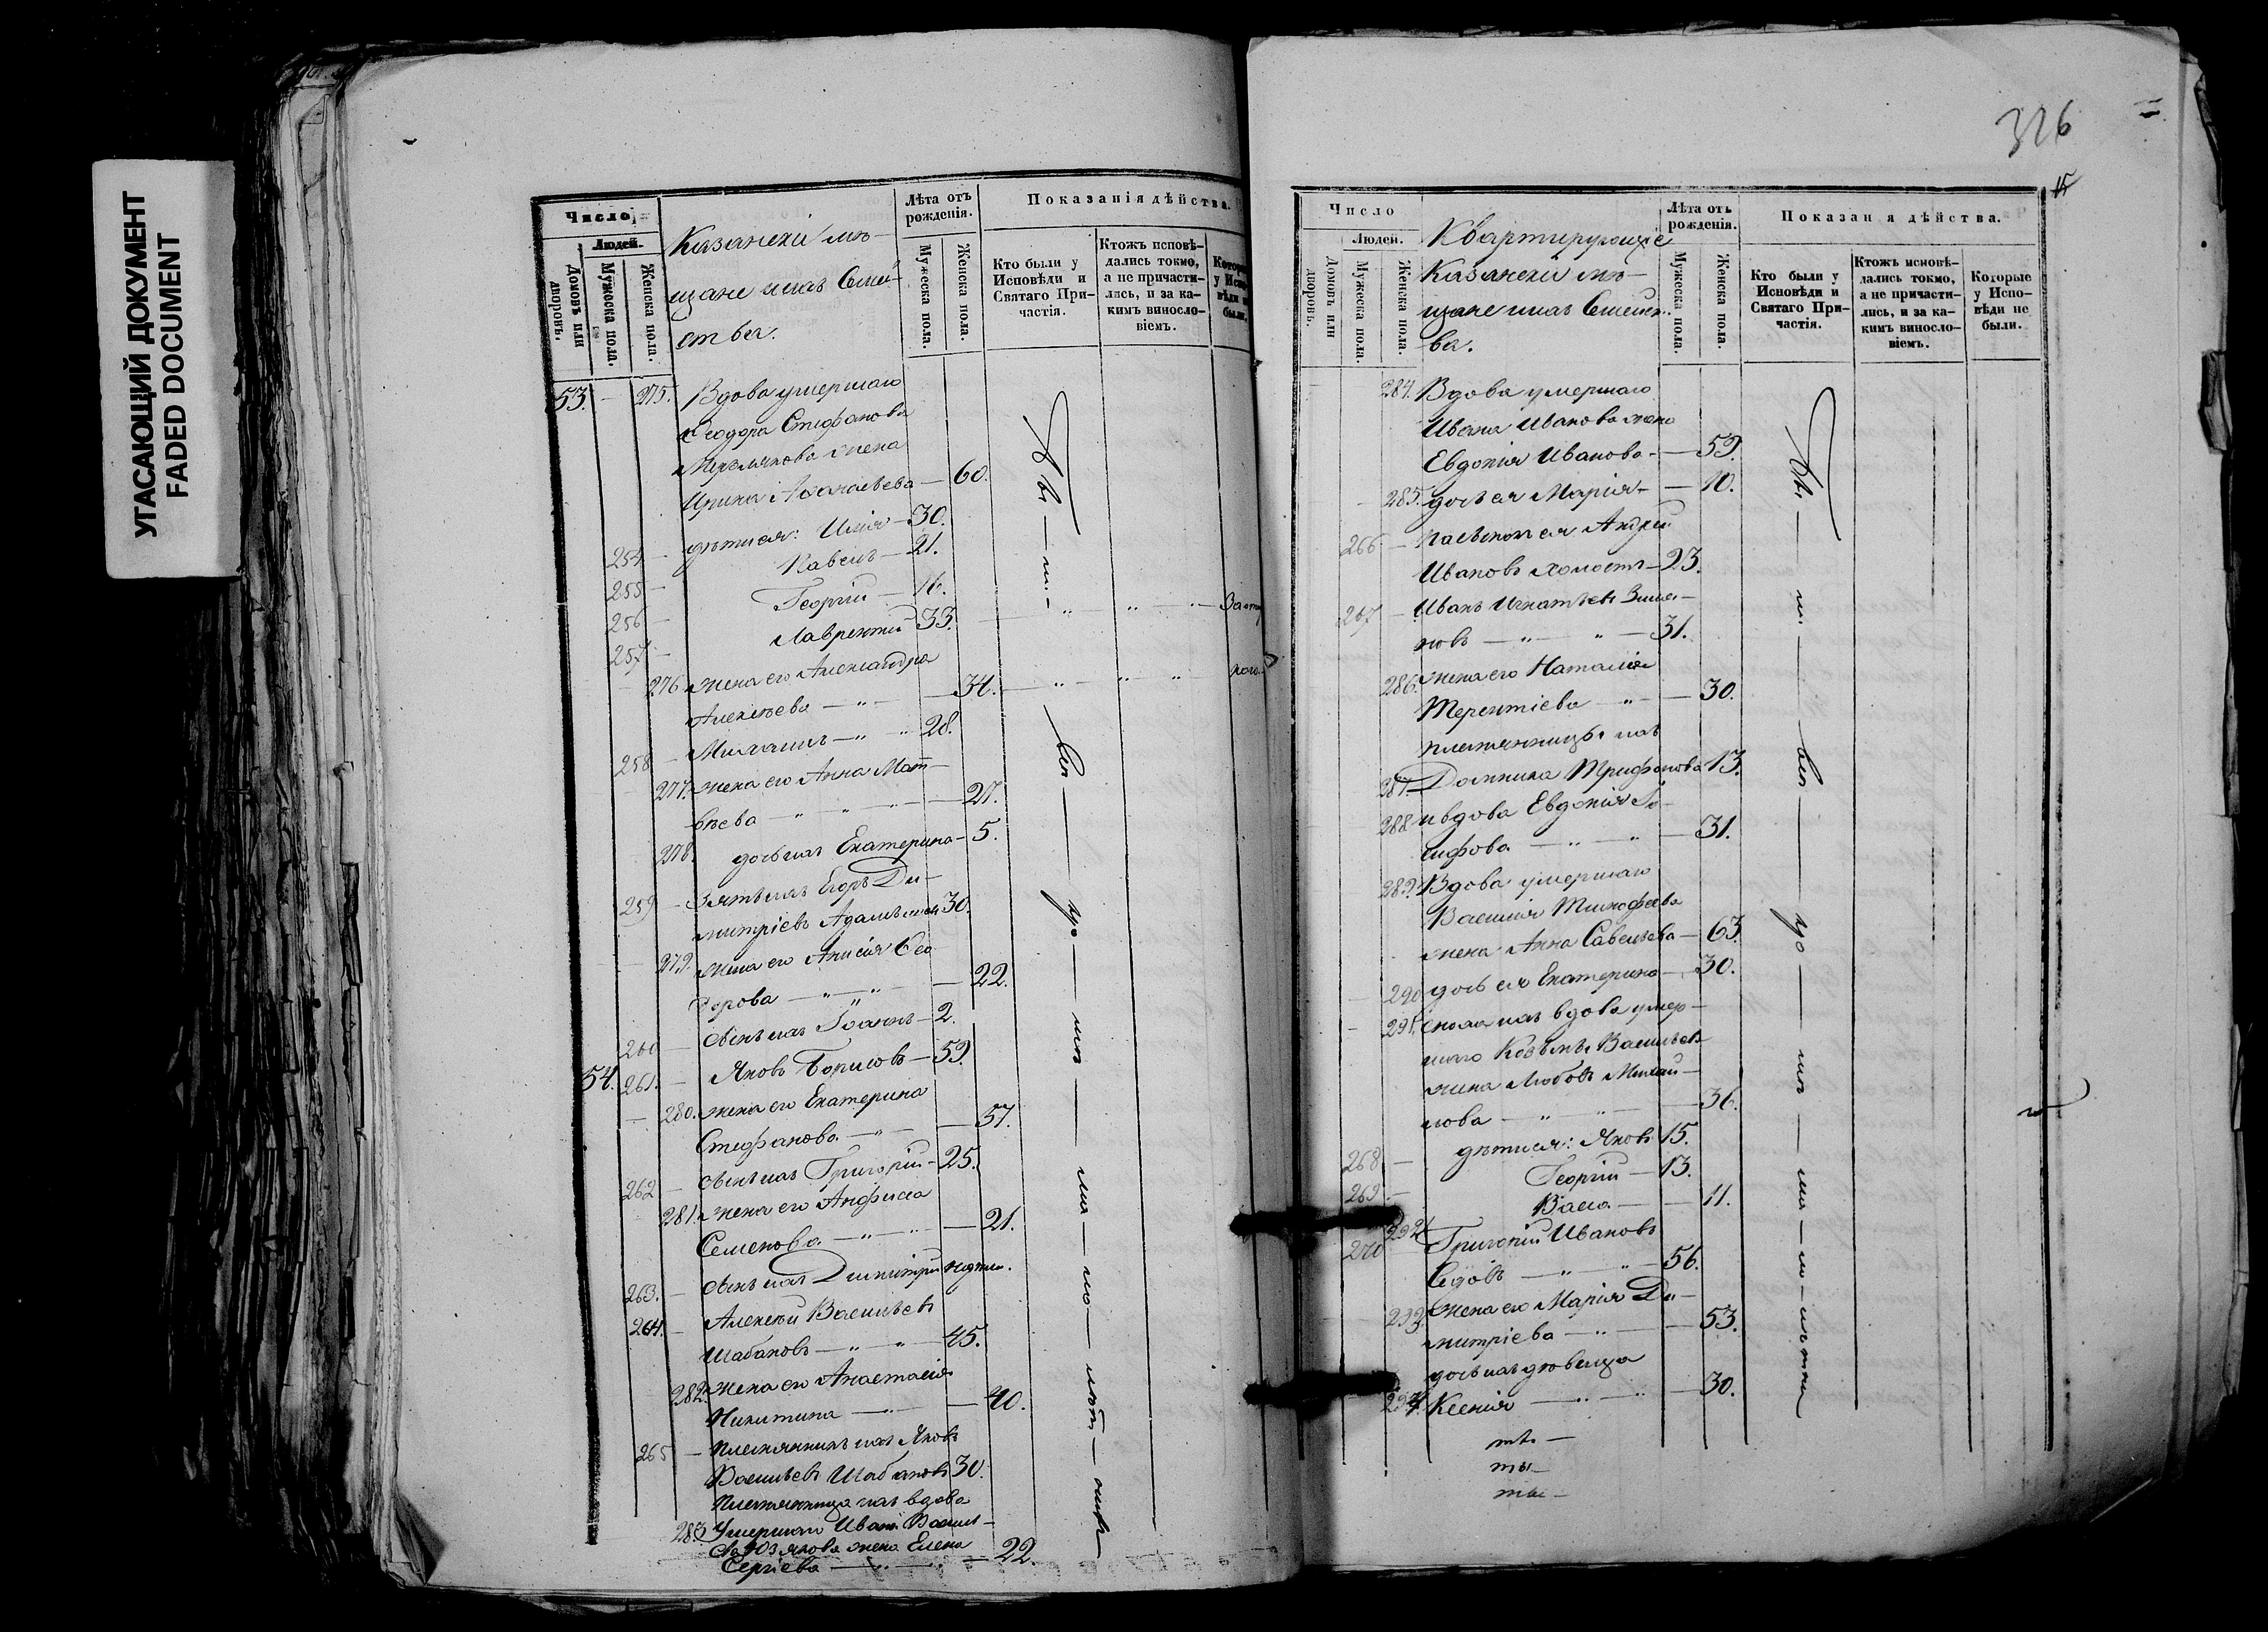 УГАСАЮЩИЙ ДОКУМЕНТ
FADED DOCUMENT
Число
Людей.
Домовъ или дворовъ.
Мужеска пола.
Женска пола.
Казанскіи мѣ-
щане и ихъ Семей-
ства.
Лѣта отъ
рожденія.
Мужеска пола.
Женска пола.
Показанія дѣйства.
Кто были у
Исповѣди и
Святаго При-
частія.
Ктожъ исповѣ-
дались токмо,
а не причасти-
лись, и за ка-
кимъ винosло-
віемъ.
53. — 275. Вдова умершаго
Ѳеодора Стефанова
жена
Ирина Аѳанасьева — 60.
254 — дѣти ея: Илія — 30.
255 — Павелъ — 21.
256 — Георгій — 16.
257 — Лаврентій 33.
276 жена его Александра
Алексѣева — 34.
258 — Михаилъ — 28.
277. жена его Анна Мат-
вѣева — 27.
278. дочь ихъ Екатерина — 5.
259 — Зять ихъ Егоръ Ди-
митріевъ 30.
279. жена его Анисія Ѳео-
дорова — 22.
260 — сынъ ихъ Іоаннъ — 2.
54. 261. — Яковъ Борисовъ — 59.
280. жена его Екатерина
Стефанова — 57.
262 — сынъ ихъ Григорій — 25.
281. жена его Анфиса
Семенова — 21.
263. — сынъ ихъ Димитрій
264. — Алексѣй Васильевъ
Шабановъ — 45.
282. жена его Анастасія
Никитина — 40.
265 — Племянникъ ихъ Яковъ
Васильевъ Шабановъ 30.
Племянница ихъ вдова
283. Умершаго Ивана Василь-
жена Елена
Сергіева — 22.
326
15
Число
Людей.
Домовъ или дворовъ.
Мужеска пола.
Женска пола.
Квартирующіе
Казанскіи мѣ-
щане и ихъ Семейст-
ва.
Лѣта отъ
рожденія.
Мужеска пола.
Женска пола.
Показанія дѣйства.
Кто были у
Исповѣди и
Святаго При-
частія.
Ктожъ исповѣ-
дались токмо,
а не причасти-
лись, и за ка-
кимъ виносло-
віемъ.
Которые
у Испо-
вѣди не
были.
284. Вдова умершаго
Ивана Иванова жена
Евдокія Иванова — 59.
285. дочь ея Марія — 10.
266 — пасынокъ ея Андрей
Ивановъ холостъ — 23.
267 — Иванъ Игнатьевъ Зима-
ковъ — 31.
286. жена его Наталія
Терентіева — 30.
племянницы ихъ
287. Домника Трифонова 13.
288 и вдова Евдокія Іо-
сифова — 31.
289. Вдова умершаго
Василія Тимофеева
жена Анна Савельева — 63.
290 дочь ея Екатерина — 30.
291. сноха ихъ вдова умер-
шаго Козьмы Васильева
жена Любовь Михай-
лова — 36.
268 — дѣти ея: Яковъ 15.
269. — Георгій — 13.
292 Васса — 11.
270 Григорій Ивановъ
Сѣдовъ — 56.
293. жена его Марія Ди-
митріева — 53.
дочь ихъ дѣвица
294. Ксенія — 30.